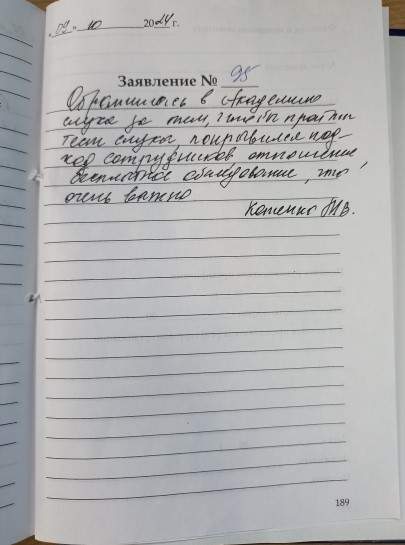 „09" 10 2024 г.
Заявление № 95
Обратились в Академию
слуха за тем, чтобы пройти
тест слуха, понравился под-
ход сотрудников, отношение,
бесплатное обследование, это
очень важно
Коненко
189